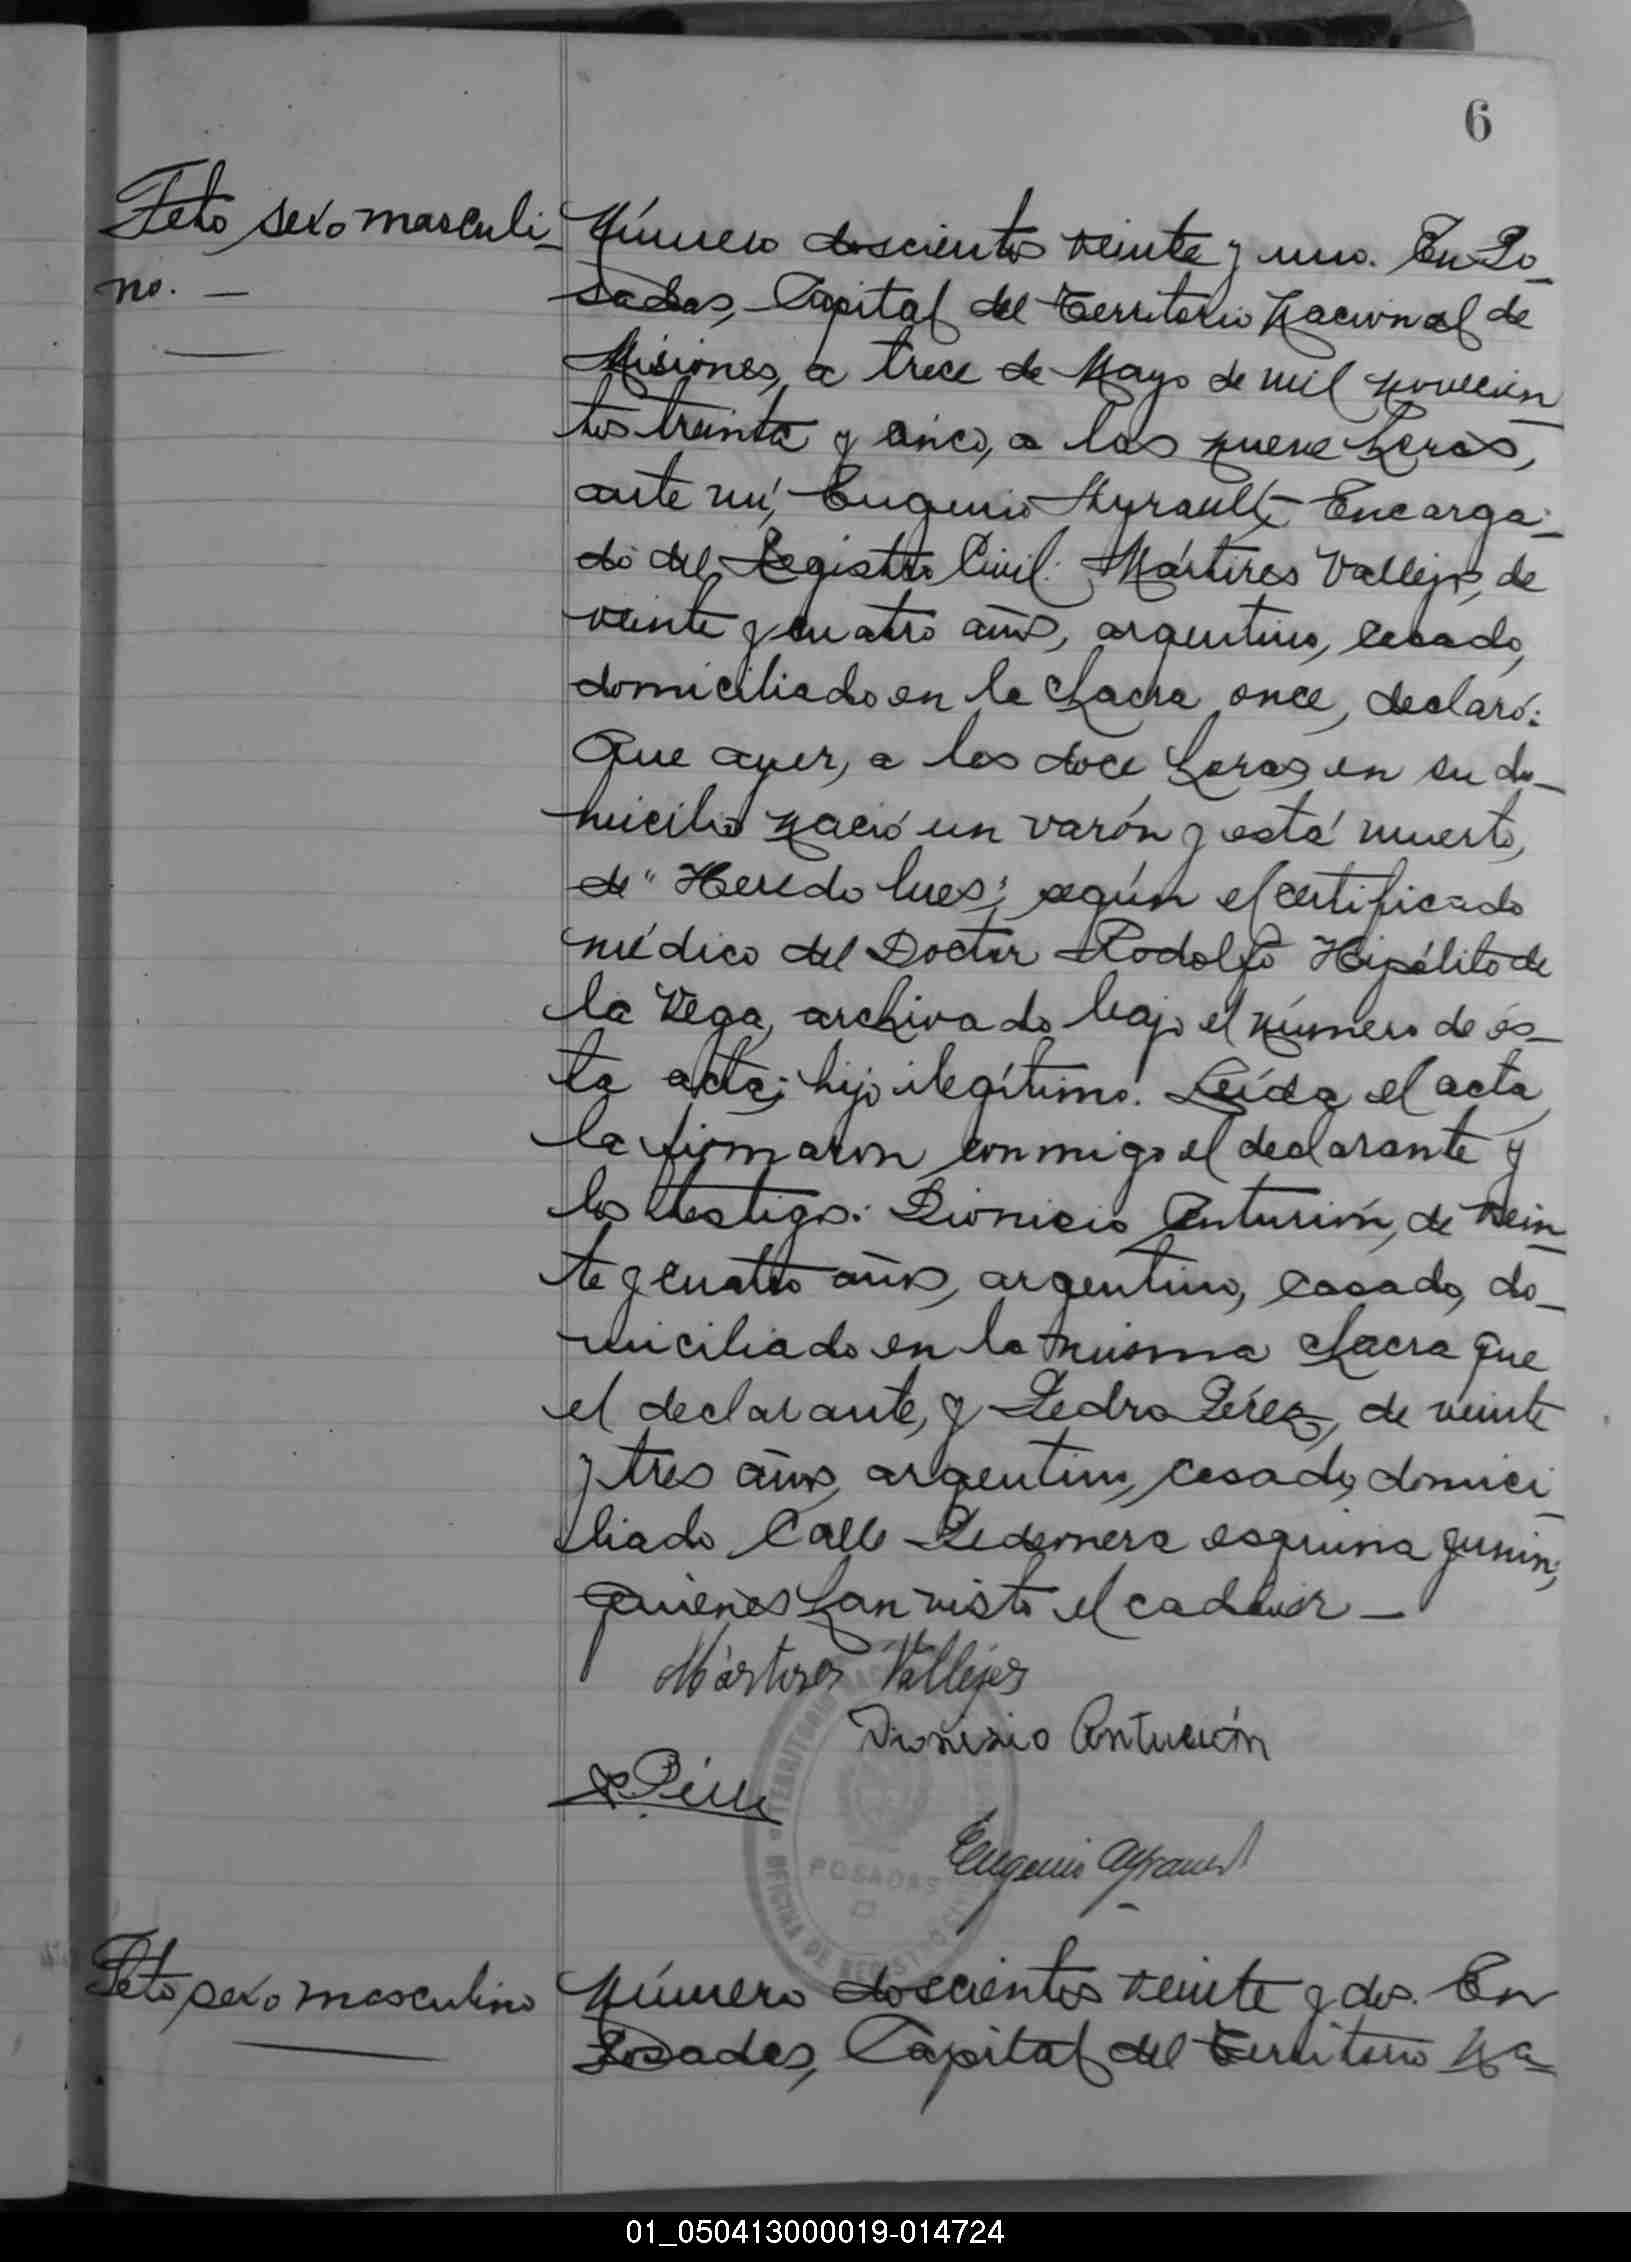 6
Feto sexo masculi-
no. —
Número doscientos veinte y uno. En Po-
sadas, Capital del Territorio Nacional de
Misiones, a trece de Mayo de mil novecien-
tos treinta y cinco, a las nueve horas,
ante mí, Eugenio Ayrault, Encarga-
do del Registro Civil: Mártires Vallejos, de
veinte y cuatro años, argentino, casado,
domiciliado en la chacra once, declaró:
Que ayer, a las doce horas, en su do-
micilio nació un varón y está muerto,
de "Heredo lues"; según el certificado
médico del Doctor Rodolfo Hipólito de
la Vega, archivado bajo el número de es-
ta acta; hijo ilegítimo. Leída el acta,
la firmaron conmigo el declarante y
los testigos: Dionicio Anturión, de vein-
te y cuatro años, argentino, casado, do-
miciliado en la misma chacra que
el declarante, y Pedro Pérez, de veinte
y tres años, argentino, casado, domici-
liado Calle Pedernera esquina Junín;
quienes han visto el cadáver —
Mártires Vallejos
Dionisio Anturión
Eugenio Ayrault
TERRITORIO
POSADAS
OFICINA DE REGISTRO CIVIL
Feto sexo masculino
Número doscientos veinte y dos. En
Posadas, Capital del Territorio Na-
01_050413000019-014724